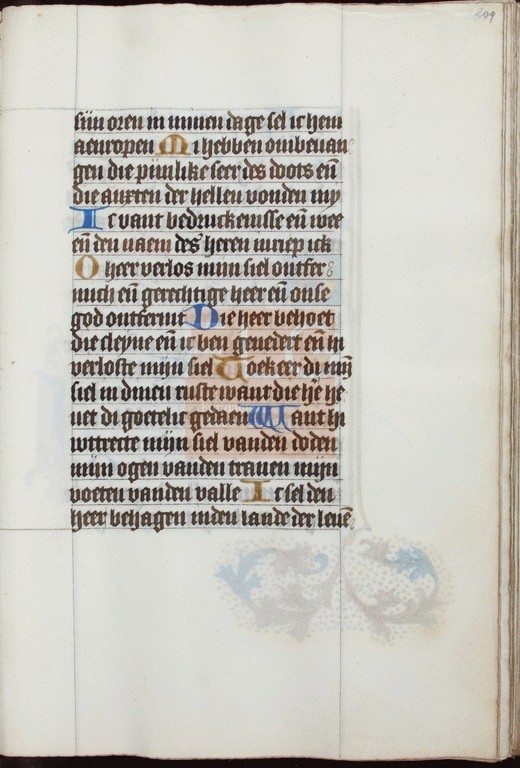 209
siin oren in minen dage sel ic hem
aenropen Mi hebben ombeuan
gen die pijnlike seer des doots en̄
die anxten der hellen vonden my
Ic vant bedruckenisse en̄ wee
en̄ den naem des heren inriep ick
O heer verlos mijn siel ontfer
mich en̄ gerechtige heer en̄ onse
god ontfermt Die heer behoet
die cleyne en̄ ic ben geuedert en̄ hi
verloste mijn siel Toekeer di mijn
siel in dinen ruste want die he he
uet di goetelic gedaen Want hi
wttrecte mijn siel vanden doden
mijn ogen vanden tranen mijn
voeten vanden valle Ic sel den
heer behagen inden lande der leuē